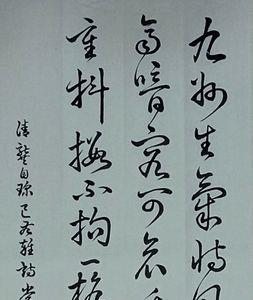 九州生氣恃風
齊喑究可哀
重抖擻不拘一格
清龔自珍己亥雜詩